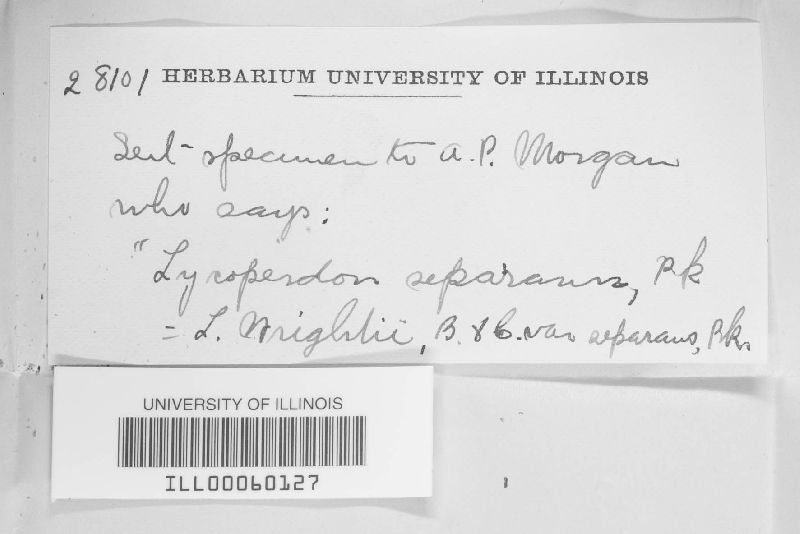 28101 HERBARIUM UNIVERSITY OF ILLINOIS
Sent specimen to A.P. Morgan
who says:
"Lycoperdon separans, Pk
= L. Wrightii, B. & C. var separans, Pk.
UNIVERSITY OF ILLINOIS
ILL00060127